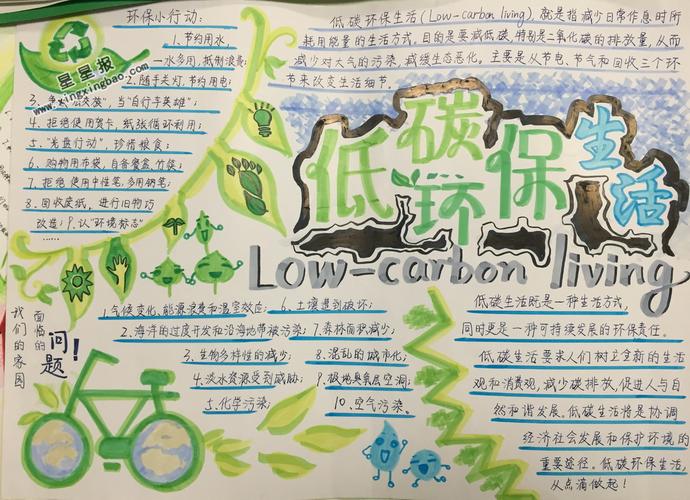 环保小行动:
1.节约用水,
一水多用,抵制浪费;
2.随手关灯,节约用电;
当"自行手英雄";
4.拒绝使用贺卡,纸张循环利用;
5."光盘行动",珍惜粮食;
6.购物用布袋,自备餐盒、竹筷;
7.拒绝使用中性笔,多用钢笔;
8.回收废纸,进行旧物巧
改造;9.认"环境标志"
......
星星报
www.xingxingbao.com
低碳环保生活(Low-carbon living),就是指减少日常作息时所
耗用能量的生活方式,目的是要减低碳,特别是二氧化碳的排放量,从而
减少对大气的污染,减缓生态恶化。主要是从节电、节气和回收三个环
节来改变生活细节。
低碳环保生活
Low-carbon living
我们的家园
面临的
问题!
1.气候变化、能源浪费和温室效应;
2.海洋的过度开发和沿海地带被污染;
3.生物多样性的减少;
4.淡水资源受到威胁;
5.化学污染;
6.土壤遭到破坏;
7.森林面积减少;
8.混乱的城市化;
9.极地臭氧层空洞;
10.空气污染。
低碳生活既是一种生活方式,
同时更是一种可持续发展的环保责任。
低碳生活要求人们树立全新的生活
观和消费观,减少碳排放,促进人与自
然和谐发展。低碳生活将是协调
经济社会发展和保护环境的
重要途径。低碳环保生活,
从点滴做起!